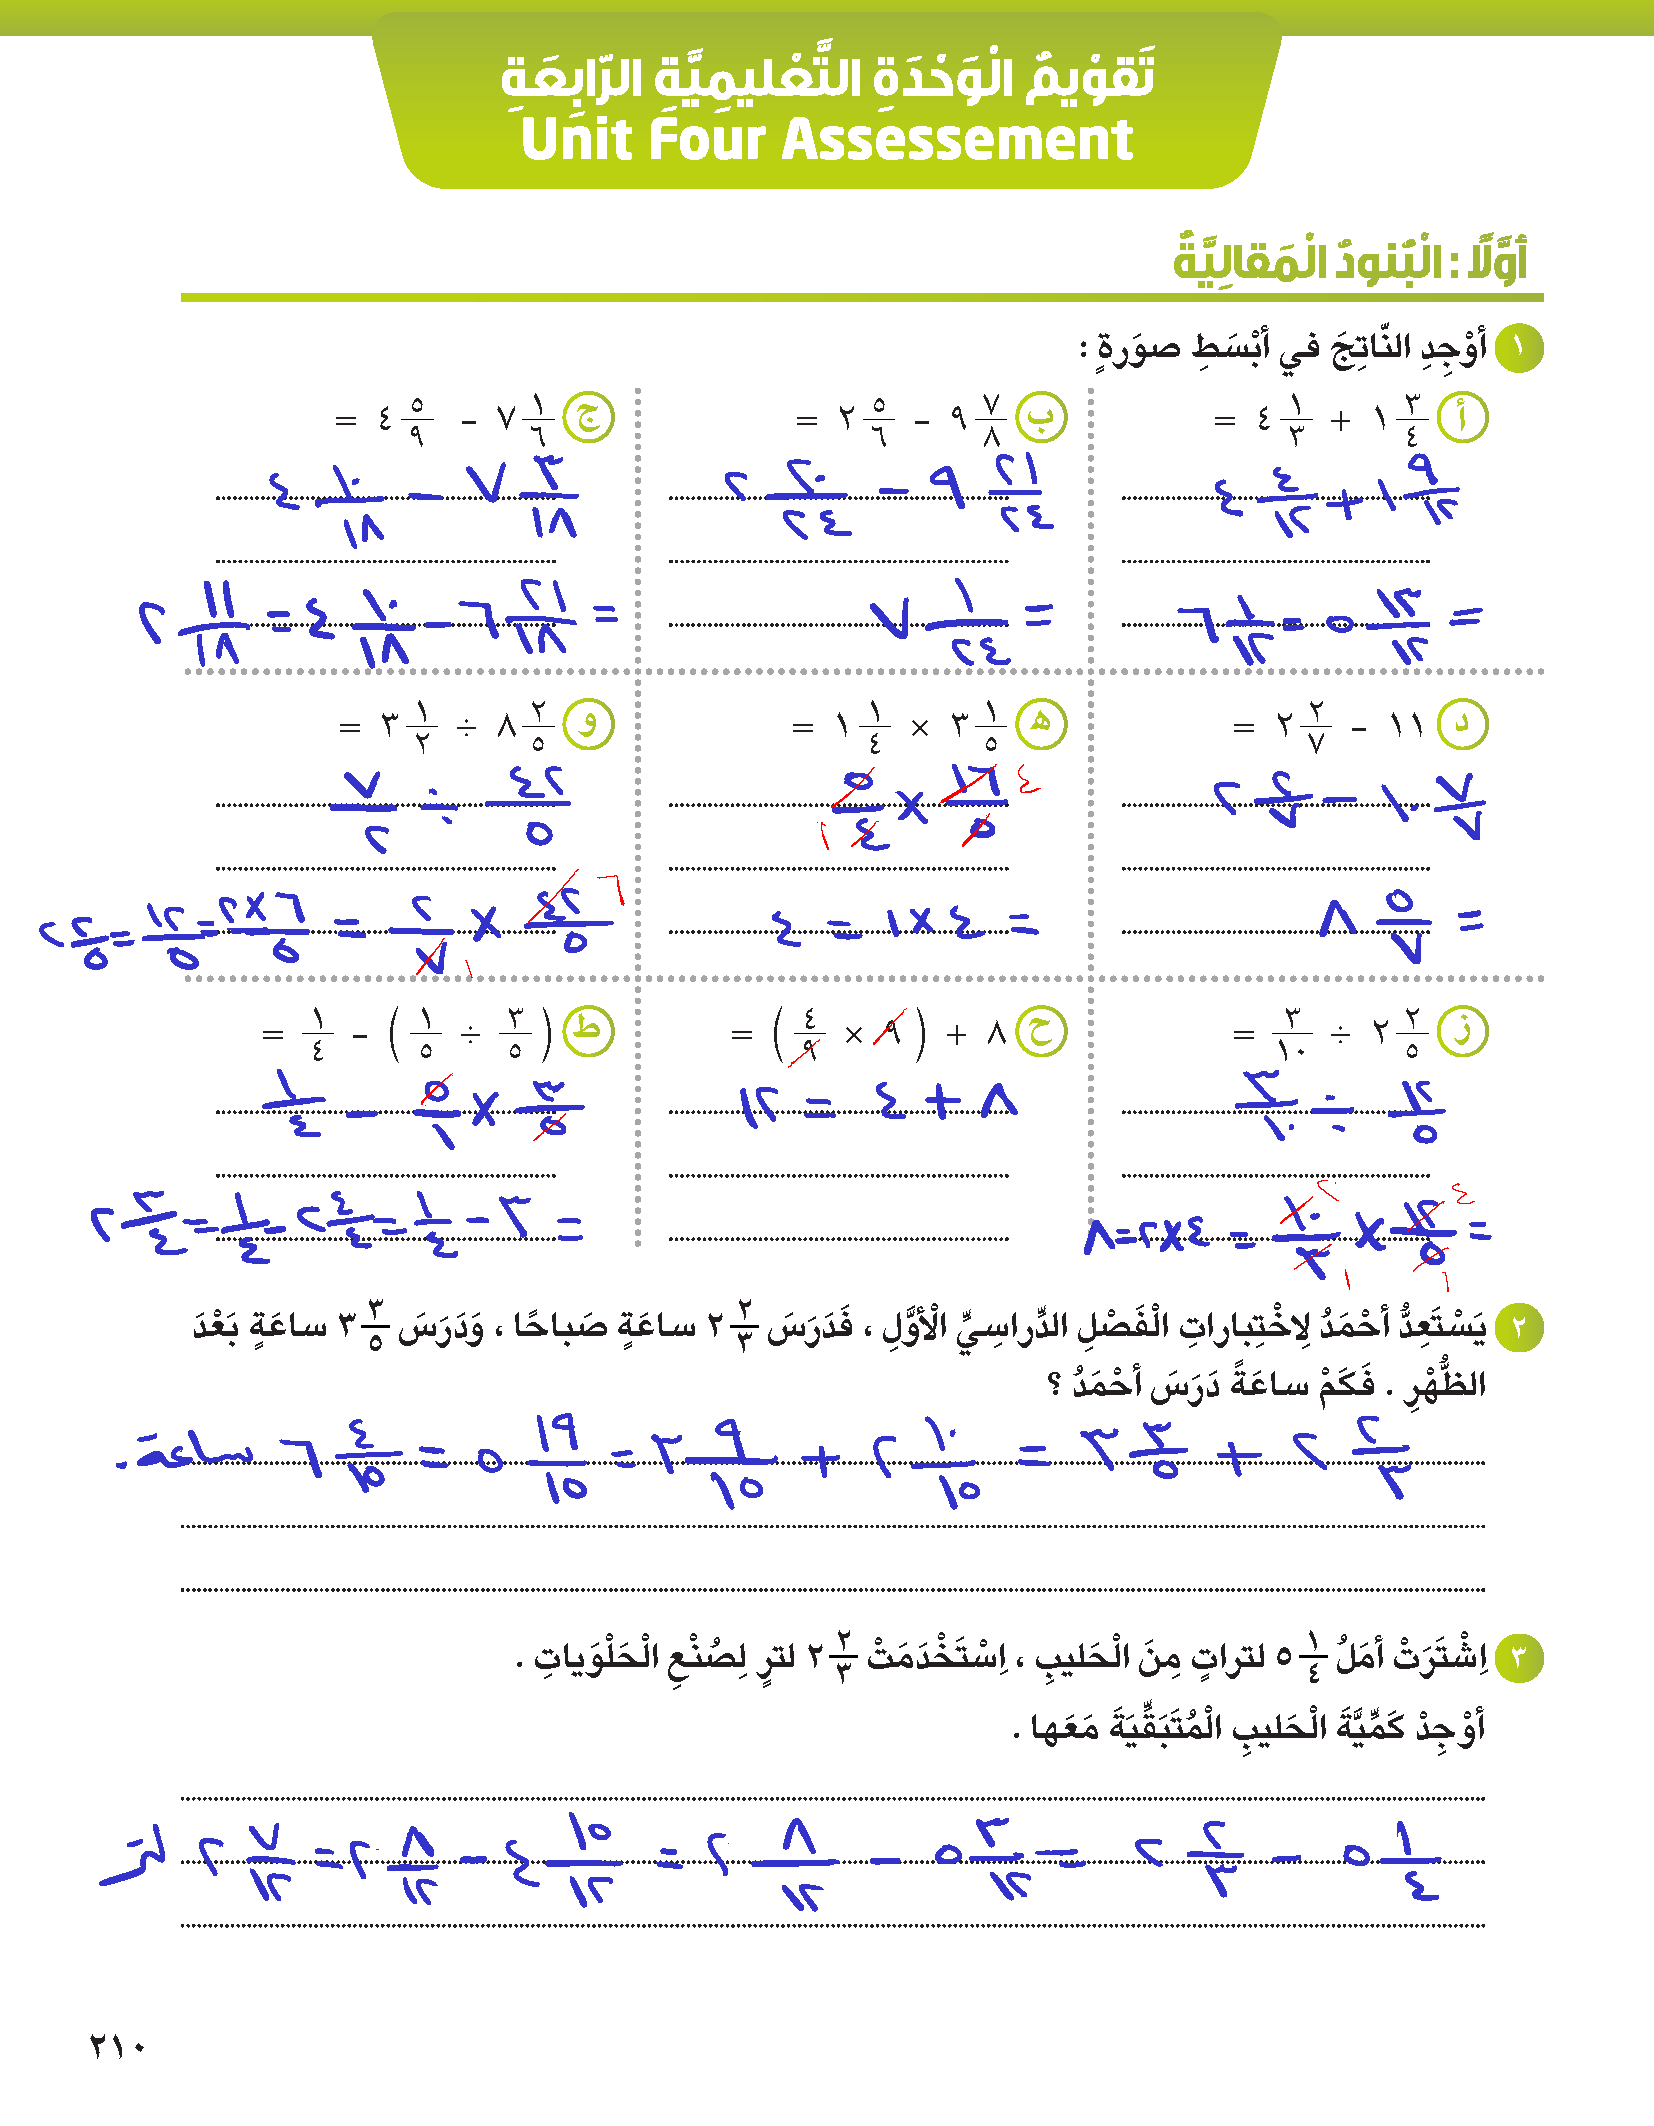 تَقْوِيمُ الْوَحْدَةِ التَّعْلِيمِيَّةِ الرّابِعَةِ
Unit Four Assessement
أَوَّلًا : الْبُنودُ الْمَقالِيَّةُ
١ أَوْجِدِ النّاتِجَ في أَبْسَطِ صورَةٍ :
أ ١ ٣/٤ + ٤ ١/٣ =
١ ٩/١٢ + ٤ ٤/١٢
= ٥ ١٣/١٢ = ٦ ١/١٢
ب ٩ ٧/٨ - ٢ ٥/٦ =
٩ ٢١/٢٤ - ٢ ٢٠/٢٤
= ٧ ١/٢٤
ج ٧ ١/٦ - ٤ ٥/٩ =
٧ ٣/١٨ - ٤ ١٠/١٨
= ٦ ٢١/١٨ - ٤ ١٠/١٨ = ٢ ١١/١٨
د ١١ - ٢ ٢/٧ =
١٠ ٧/٧ - ٢ ٢/٧
= ٨ ٥/٧
ه ٣ ١/٥ × ١ ١/٤ =
١٦/٥ × ٥/٤ ٤ ١
= ٤ × ١ = ٤
و ٨ ٢/٥ ÷ ٣ ١/٢ =
٤٢/٥ ÷ ٧/٢
٦ ٤٢/٥ × ٢/٧ ١ = ٦×٢/٥ = ١٢/٥ = ٢ ٢/٥
ز ٢ ٢/٥ ÷ ٣/١٠ =
١٢/٥ ÷ ٣/١٠
= ٤ ١٢/٥ ١ × ٢ ١٠/٣ ١ = ٤×٢=٨
ح ٨ + ( ٩ × ٤/٩ ) =
٨ + ٤ = ١٢
ط ( ٣/٥ ÷ ١/٥ ) - ١/٤ =
٣/٥ × ٥/١ - ١/٤
= ٣ - ١/٤ = ٢ ٤/٤ - ١/٤ = ٢ ٣/٤
٢ يَسْتَعِدُّ أَحْمَدُ لِاخْتِباراتِ الْفَصْلِ الدِّراسِيِّ الْأَوَّلِ ، فَدَرَسَ ٢ ٢/٣ ساعَةٍ صَباحًا ، وَدَرَسَ ٣ ٣/٥ ساعَةٍ بَعْدَ
الظُّهْرِ . فَكَمْ ساعَةً دَرَسَ أَحْمَدُ ؟
٢ ٢/٣ + ٣ ٣/٥ = ٢ ١٠/١٥ + ٣ ٩/١٥ = ٥ ١٩/١٥ = ٦ ٤/١٥ ساعة.
٣ اِشْتَرَتْ أَمَلُ ٥ ١/٤ لتراتٍ مِنَ الْحَليبِ ، اِسْتَخْدَمَتْ ٢ ٢/٣ لترٍ لِصُنْعِ الْحَلْوَياتِ .
أَوْجِدْ كَمِّيَّةَ الْحَليبِ الْمُتَبَقِّيَةَ مَعَها .
٥ ١/٤ - ٢ ٢/٣ = ٥ ٣/١٢ - ٢ ٨/١٢ = ٤ ١٥/١٢ - ٢ ٨/١٢ = ٢ ٧/١٢ لتر
٢١٠